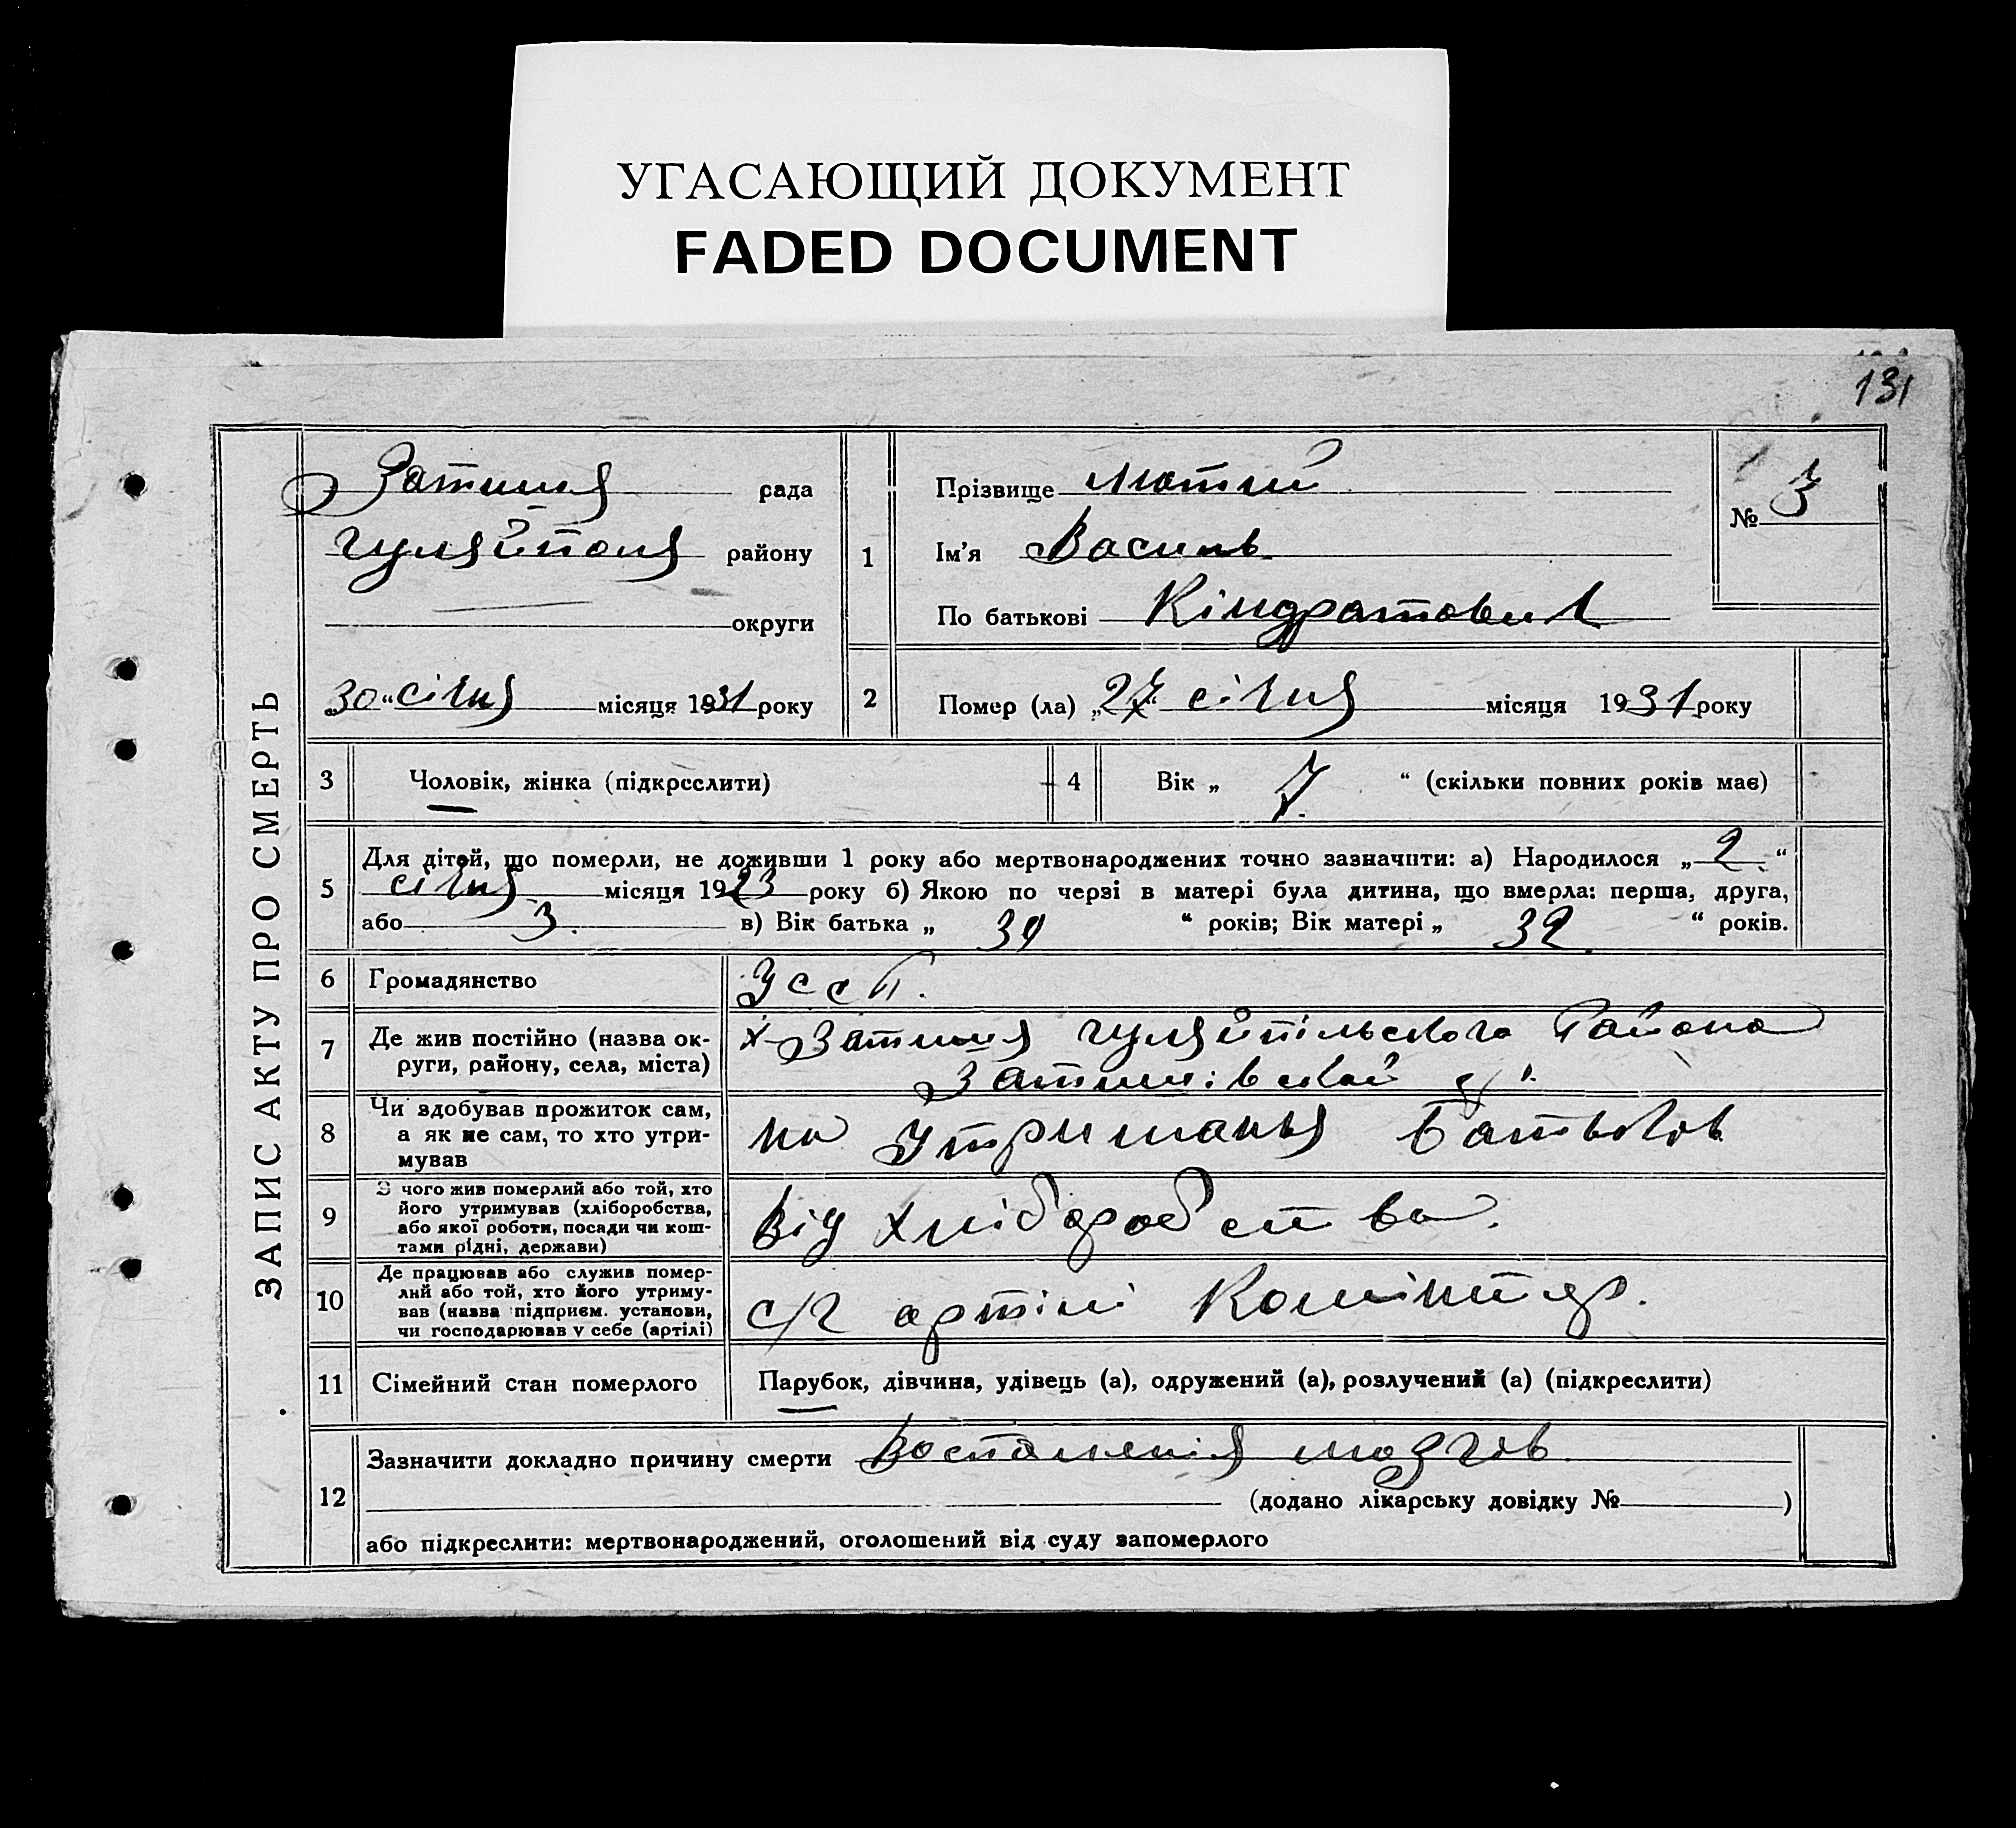 УГАСАЮЩИЙ ДОКУМЕНТ
FADED DOCUMENT
131
ЗАПИС АКТУ ПРО СМЕРТЬ
Затишя рада
Гуляйполя району
округи
„30“ січня місяця 1931 року
1
Прізвище Лютий
Ім'я Василь
По батькові Кіндратович
№ 3
2
Помер (ла) „27“ січня місяця 1931 року
3 Чоловік, жінка (підкреслити)
4 Вік „ 7 “ (скільки повних років має)
5 Для дітей, що померли, не доживши 1 року або мертвонароджених точно зазначити: а) Народилося „ 2 “
січня місяця 1923 року б) Якою по черзі в матері була дитина, що вмерла: перша, друга,
або 3. в) Вік батька „ “ років; Вік матері „ 32 “ років.
6 Громадянство УССР.
7 Де жив постійно (назва округи, району, села, міста)
х. Затишя Гуляйпільского Района
Затишівской
8 Чи здобував прожиток сам, а як не сам, то хто утримував
на Утриманья Батьков
9 З чого жив померлий або той, хто його утримував (хліборобства, або якої роботи, посади чи коштами рідні, держави)
Від хліборобства.
10 Де працював або служив померлий або той, хто його утримував (назва підприєм. установи, чи господарював у себе (артілі)
с/г артілі Комінтер.
11 Сімейний стан померлого
Парубок, дівчина, удівець (а), одружений (а), розлучений (а) (підкреслити)
12 Зазначити докладно причину смерти Воспаленія мозгов
(додано лікарську довідку № )
або підкреслити: мертвонароджений, оголошений від суду запомерлого